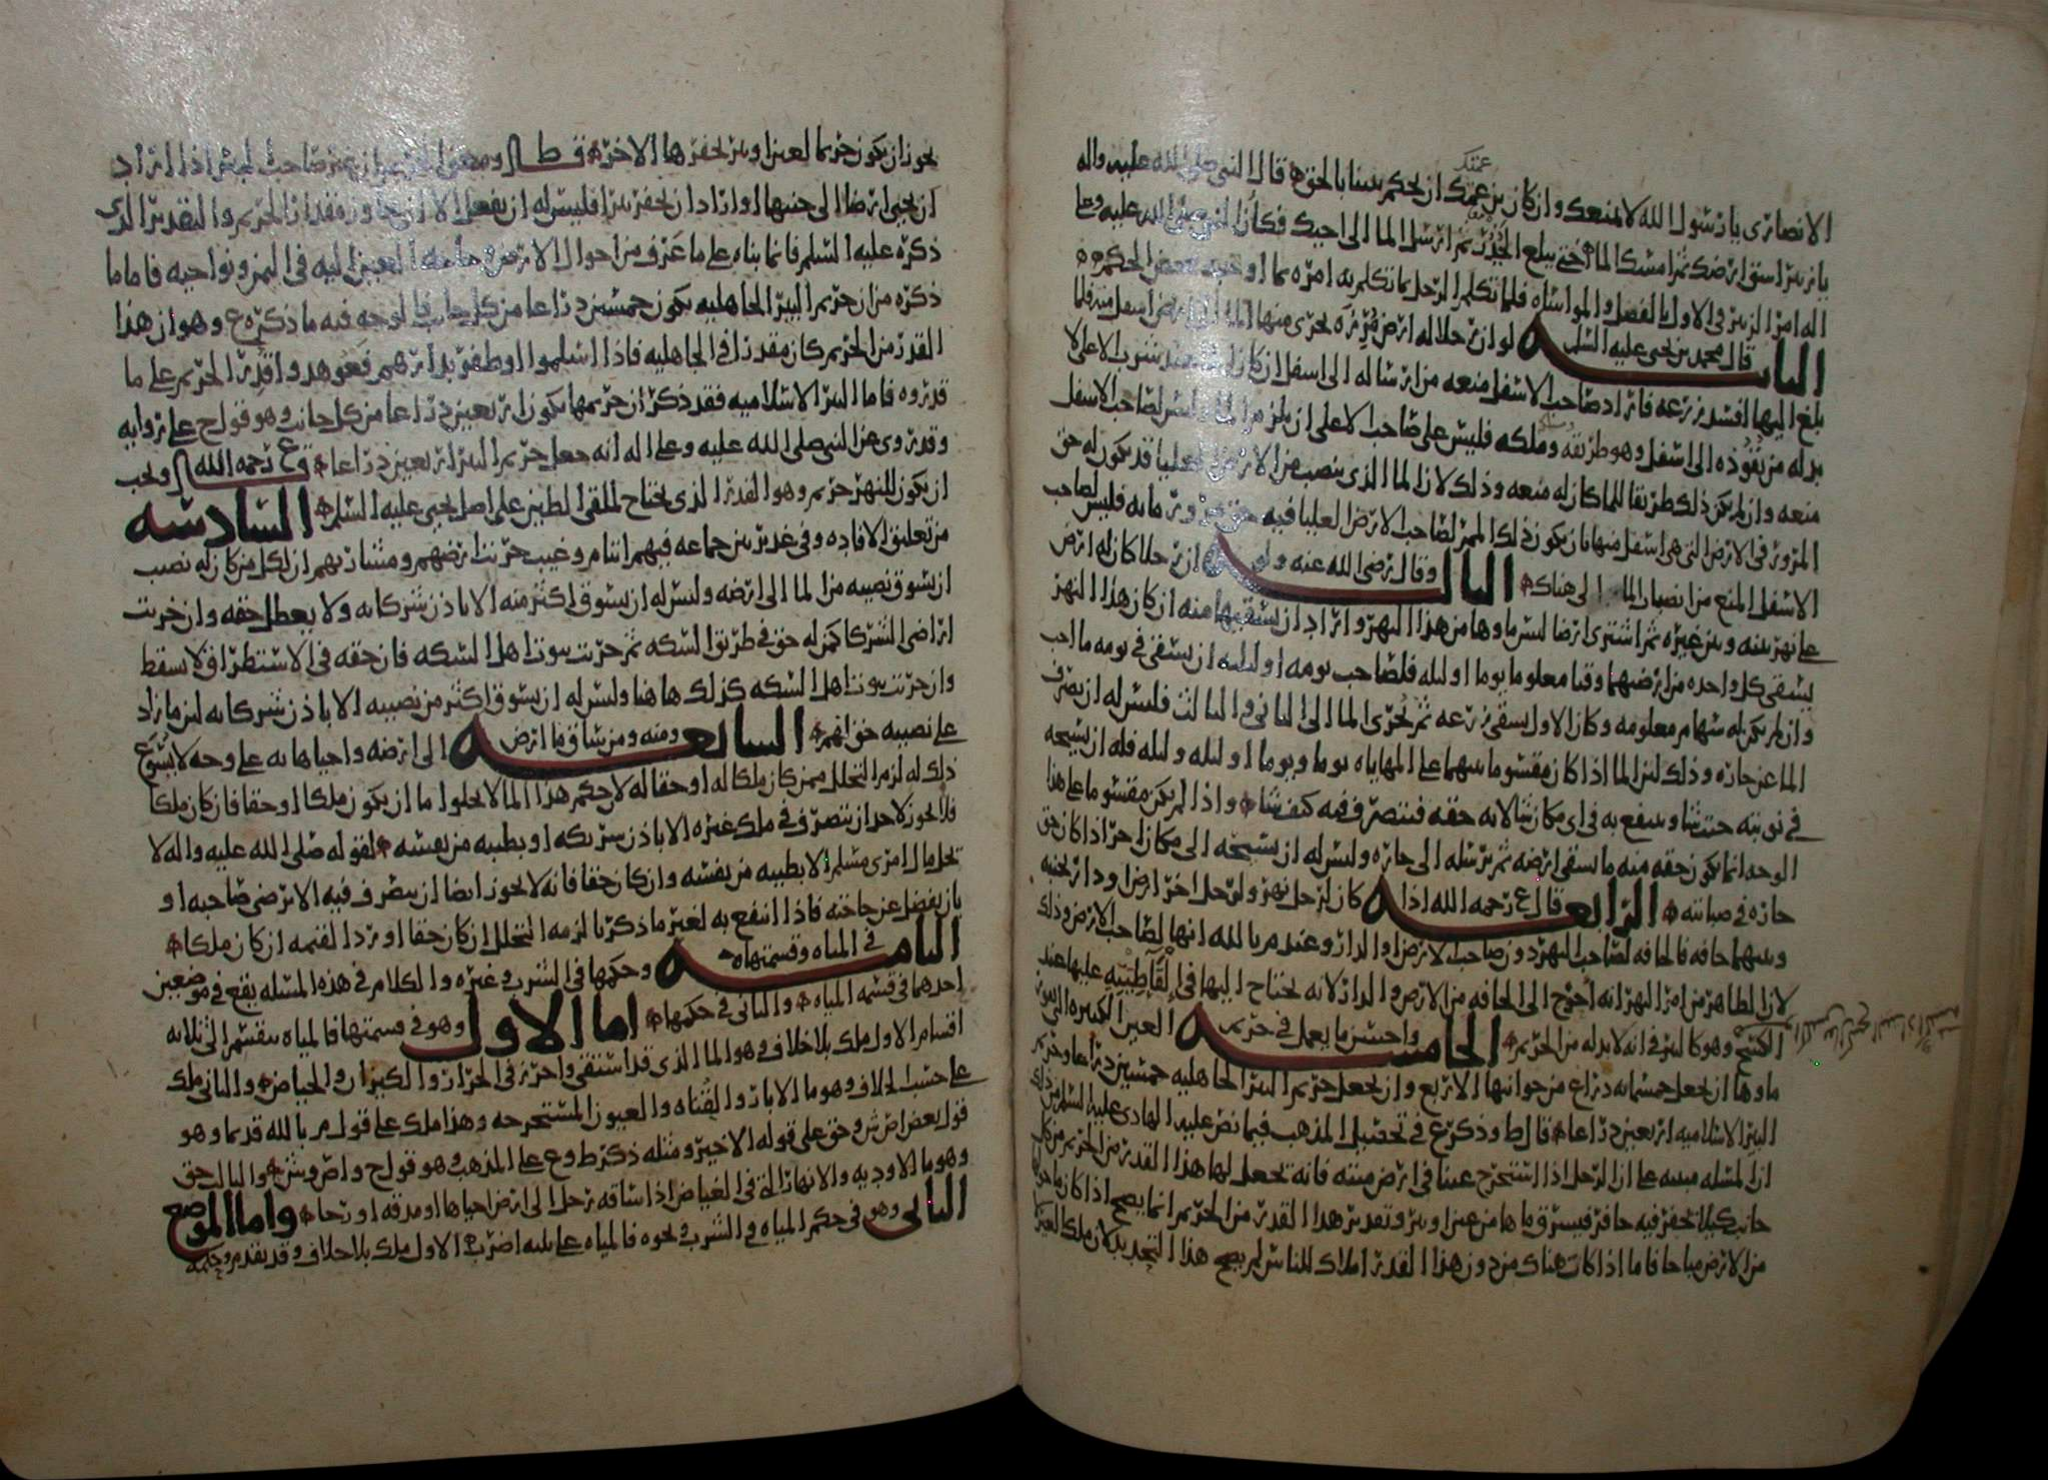 الانصاري يا رسول الله لا يمنعك وان كان بن عمتك ان تحكم بيننا بالحق قال النبي صلى الله عليه واله
عمتك
يا زبير اسق ارضك ثم امسك الماء حتى يبلغ الجدر ثم ارسل الماء الى اخيك فكان النبي صلى الله عليه وعلى
اله امر الزبير في الاول بالفضل والمواساه فلما تكلم الرجل بما تكلم به امره بما اوجبه بعض الحكم
الثانيه قال محمد بن يحيى عليه السلم لو ان رجلا له ارض مزبره يجري منها الماء الى ارض اسفل منه فلما
بلغ اليها افسد زرعه فاراد صاحب الاسفل منعه من ارساله الى اسفل ان كان شرب الاعلى لا
بد له من نفوذه الى اسفل وهو طريقه ومسلكه فليس على صاحب الاعلى ان يلزم الماء وليس لصاحب الاسفل
منعه وان لم يكن ذلك طريقا للماء كان له منعه وذلك لان الماء الذي ينصب من الارض العليا قد يكون له حق
المرور في الارض التي هي اسفل منها بان يكون ذلك الممر لصاحب الارض العليا فيه حق مرور مائه فليس لصاحب
الاسفل المنع من انصباب الماء الى هناك الثالثه وقال رضي الله عنه ولو ان رجلا كان له ارض
على نهر بينه وبين غيره ثم اشترى ارضا ليس ماوها من هذا النهر واراد ان يسقيها منه ان كان هذا النهر
يسقي كل واحده من ارضهما وقتا معلوما يوما او ليله فلصاحب يومه او ليلته ان يسقي في يومه ما احب
وان لم يكن له سهام معلومه وكان الاول يسقي زرعه ثم يجري الماء الى الثاني والثالث فليس له ان يصرف
الماء عن جاره وذلك لان الماء اذا كان مقسوما بينهما على المهاياه يوما ويوما او ليله وليله فله ان يسيحه
في نوبته حيث شاء وينتفع به في اي مكان شاء لانه حقه فيتصرف فيه كيف شاء واذا لم يكن مقسوما على هذا
الوجه انما يكون حقه منه ما يسقي ارضه ثم يرسله الى جاره وليس له ان يسيحه الى مكان اخر اذا كان حق
جاره في صبابته الرابعه قال ع رحمه الله اذا كان لرجل نهر ولرجل اخر ارض او دار بجنبه
وبينهما حافه فالحافه لصاحب النهر دون صاحب الارض او الدار وعند م بالله انها لصاحب الارض وذلك
لان الظاهر من امر النهر انه احوج الى الحافه من الارض والدار لانه يحتاج اليها في القا طينه عليها عند
الكسح وهو كالبئر في انه لا بد له من الحريم الخامسه واحسن ما يعمل في حريم العين الكبيره التي يفور
ماوها ان يجعل خمسمائه ذراع من جوانبها الاربع وان يجعل حريم البئر الجاهليه خمسين ذراعا وحريم
البئر الاسلاميه اربعين ذراعا قال ط وذكر ع في تحصيل المذهب فيما نص عليه الهادي عليه السلم من ذلك
ان المسله مبنيه على ان الرجل اذا استخرج عينا في ارض ميته فانه يجعل لها هذا القدر من الحريم من كل
جانب كيلا يحفر فيه حافر فيسرق ماها من عين او بئر وتقدير هذا القدر من الحريم انما يصح اذا كان ما حوله
من الارض مباحا فاما اذا كانت هناك من دون هذا القدر املاك للناس لم يصح هذا التحديد لان ملك الغير
يجوز ان يكون حريما لعين او بئر يحفرها الاخر قال ط ومعنى الحريم ان يمنع صاحب البئر اذا اراد
ان يحيي ارضا الى جنبها او اراد ان يحفر بئرا فليس له ان يفعل الا ان يجاوز مقدار الحريم والتقدير الذي
ذكره عليه السلم فانما بناه على ما عرف من احوال الارض وحاجه العين اليه في اليمن ونواحيه فاما ما
ذكره من ان حريم البئر الجاهليه يكون خمسين ذراعا من كل جانب فالوجه فيه ما ذكره ع وهو ان هذا
القدر من الحريم كان مقدرا في الجاهليه فاذا اسلموا او ظفر بدارهم فعوهدوا قدر الحريم على ما
قدروه فاما البئر الاسلاميه فقد ذكر ان حريمها يكون اربعين ذراعا من كل جانب وهو قول ح على روايه
وقد روي عن النبي صلى الله عليه وعلى اله انه جعل حريم البئر اربعين ذراعا قال ع رحمه الله ويجب
ان يكون للنهر حريم وهو القدر الذي يحتاج لملقى الطين على اصل يحيى عليه السلم السادسه
من تعليق الافاده وفي غدير بين جماعه فيهم ايتام وغيب خربت ارضهم ومشاربهم ان لكل من كان له نصيب
ان يسوق نصيبه من الماء الى ارضه وليس له ان يسوق اكثر منه الا باذن شركائه ولا يعطل حقه وان خربت
اراضي الشركا كمن له حق في طريق السكه ثم خربت بيوت اهل السكه فان حقه في الاستطراق لا يسقط
وان خربت بيوت اهل السكه كذلك هاهنا وليس له ان يسوق اكثر من نصيبه الا باذن شركائه لان ما زاد
على نصيبه حق لهم السابعه ومنه ومن ساق ما ارض الى ارضه واحياها به على وجه لا يسوغ
ذلك له لزم التحلل ممن كان ملكا له او حقا له لان حكم هذا الماء لا يخلوا اما ان يكون ملكا او حقا فان كان ملكا
فلا يجوز لاحد ان يتصرف في ملك غيره الا باذن شريكه او بطيبه من نفسه لقوله صلى الله عليه واله لا
يحل مال امرئ مسلم الا بطيبه من نفسه وان كان حقا فانه لا يجوز ايضا ان يتصرف فيه الا برضى صاحبه او
بان يفضل عن حاجته فاذا انتفع به لغير ما ذكرنا لزمه التحلل ان كان حقا او رد القيمه ان كان ملكا
الثامنه في المياه وقسمتها وحكمها في الشرب وغيره والكلام في هذه المسله يقع في موضعين
احدهما في قسمه المياه والثاني في حكمها اما الاول وهو في قسمتها فالمياه ينقسم الى ثلاثه
اقسام الاول ملك بلا خلاف وهو الماء الذي قد استقي واحرز في الجرار والكيزان والحياض والثاني ملك
على حسب الخلاف وهو ما الابار والقناه والعيون المستخرجه وهذا ملك على قول م بالله قديما وهو
قول بعض اص ش وحق على قوله الاخير ومثله ذكر ط وع على المذهب وهو قول ح واص وش والثالث حق
وهو ما الاوديه والانهار التي في الغياض اذا ساقه رجل الى ارض احياها او مدقه او رحا واما الموضع
الثاني وهو في حكم المياه في الشرب ونحوه فالمياه على ثلثه اضرب الاول ملك بلا خلاف وقد تقدم وحكمه